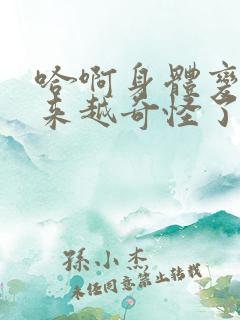 哈啊身體變
来越奇怪了
孫小杰
未經同意禁止转载